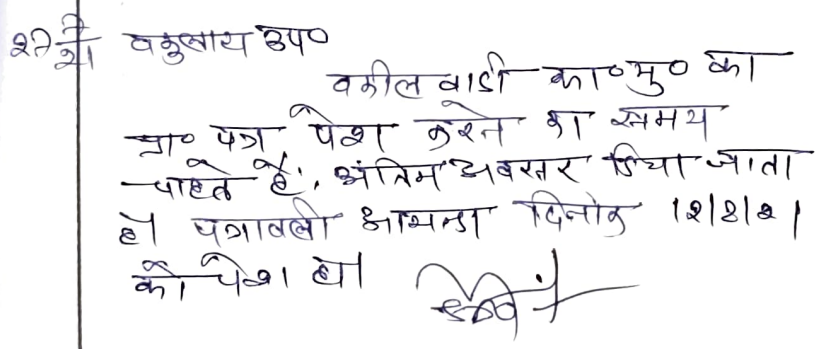 27/7/21 वकुलाय उप०
वकील वादी का०मु० का
प्रा० पत्र पेश करने का समय
चाहते है, अंतिम अवसर दिया जाता
है। पत्रावली आयन्दा दिनांक 12/8/21
को पेश हो।